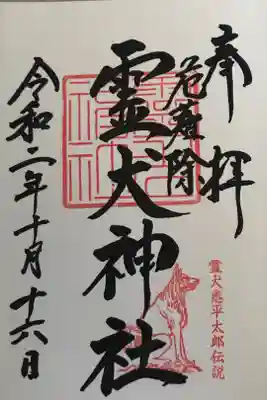 奉拝
危産除
霊犬神社
令和二年十月十六日
霊犬悉平太郎伝説